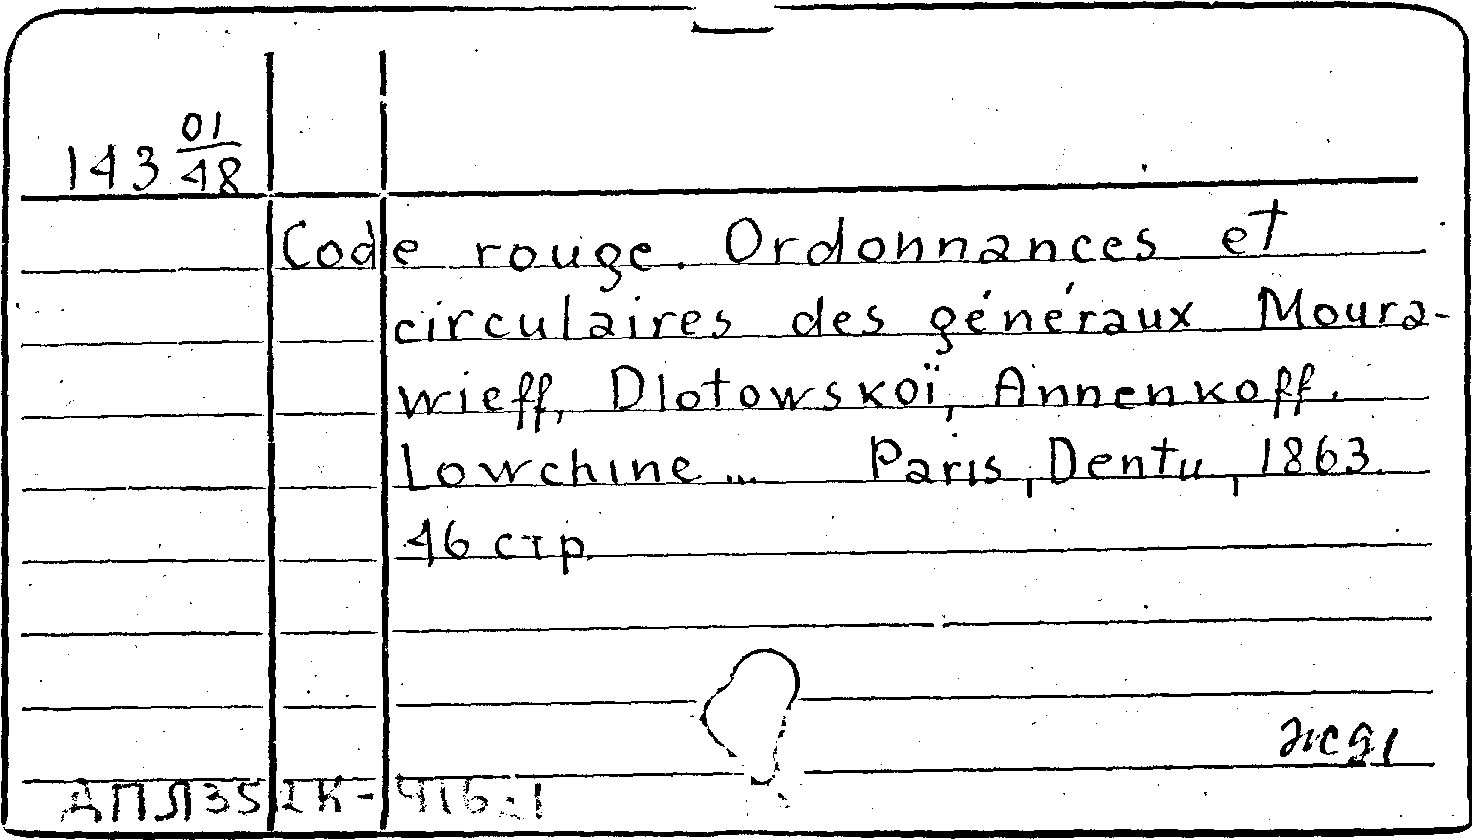 143 01/48
Code rouge. Ordonnances et
circulaires des généraux Moura-
wieff, Dlotowskoï, Annenkoff.
Lowchine... Paris, Dentu, 1863.
46 стр.